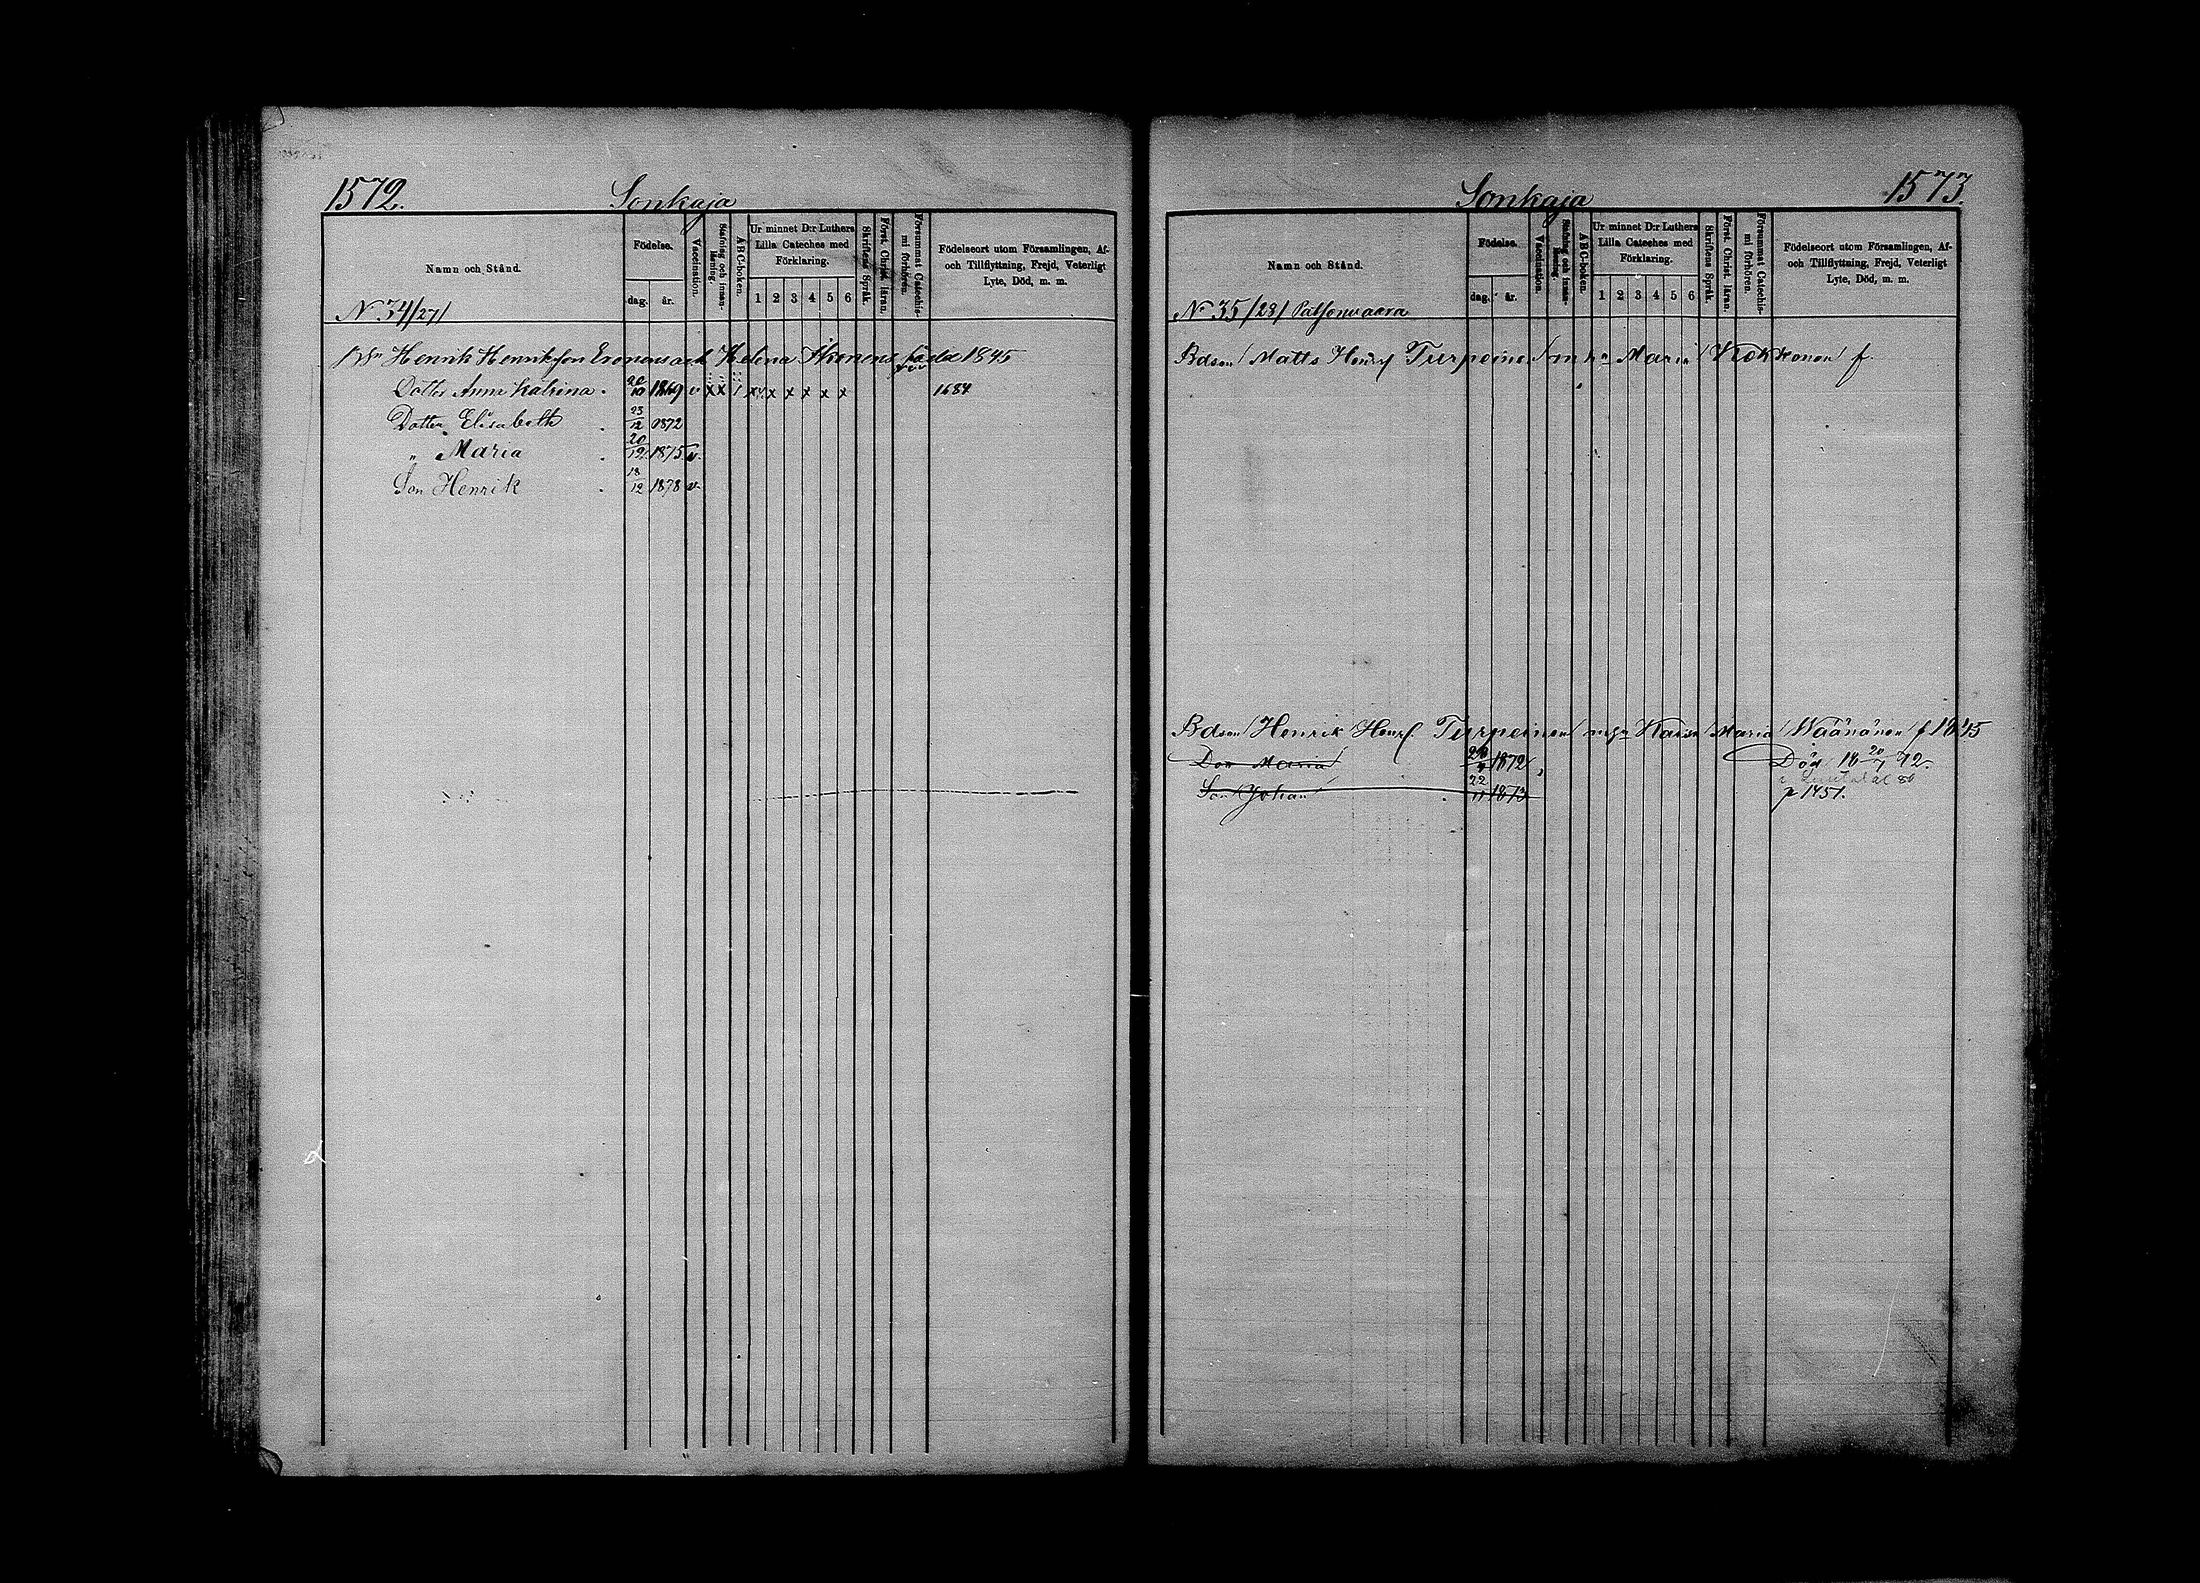 1572.
Sonkaja
Namn och Stånd.
Födelse.
dag.
år.
Vaccination.
Stafning och innan-
läsning.
A B C-boken.
Ur minnet D:r Luthers
Lilla Cateches med
Förklaring.
1 2 3 4 5 6
Skriftens Språk.
Först. Christ. läran.
Försummat Catechis-
mi förhören.
Födelseort utom Församlingen, Af-
och Tillflyttning, Frejd, Veterligt
Lyte, Död, m. m.
No 34/27/
Henrik Henriksson Eronens och Helena Ikonens födde 1845
Dotter Anna Katrina 10 1869 v x x 1 x x x x x x 1684
Dotter Elisabeth 23/12 1872
" Maria 20/12 1875 v.
Son Henrik 18/12 1878 v.
Sonkaja
1573.
Namn och Stånd.
Födelse.
dag.
år.
Vaccination.
Stafning och innan-
läsning.
A B C-boken.
Ur minnet D:r Luthers
Lilla Cateches med
Förklaring.
1 2 3 4 5 6
Skriftens Språk.
Först. Christ. läran.
Försummat Catechis-
mi förhören.
Födelseort utom Församlingen, Af-
och Tillflyttning, Frejd, Veterligt
Lyte, Död, m. m.
No 35/28/ Patsonvaara
Bdson Matts Henrs Turpeinen Maria Kokkonen f.
Bdson Henrik Henrs Turpeinen Maria Wäänänen f 1845
Dotr Maria 1872 Död 18 20/7 72.
Son Johan 22/11 1873 p 1451.